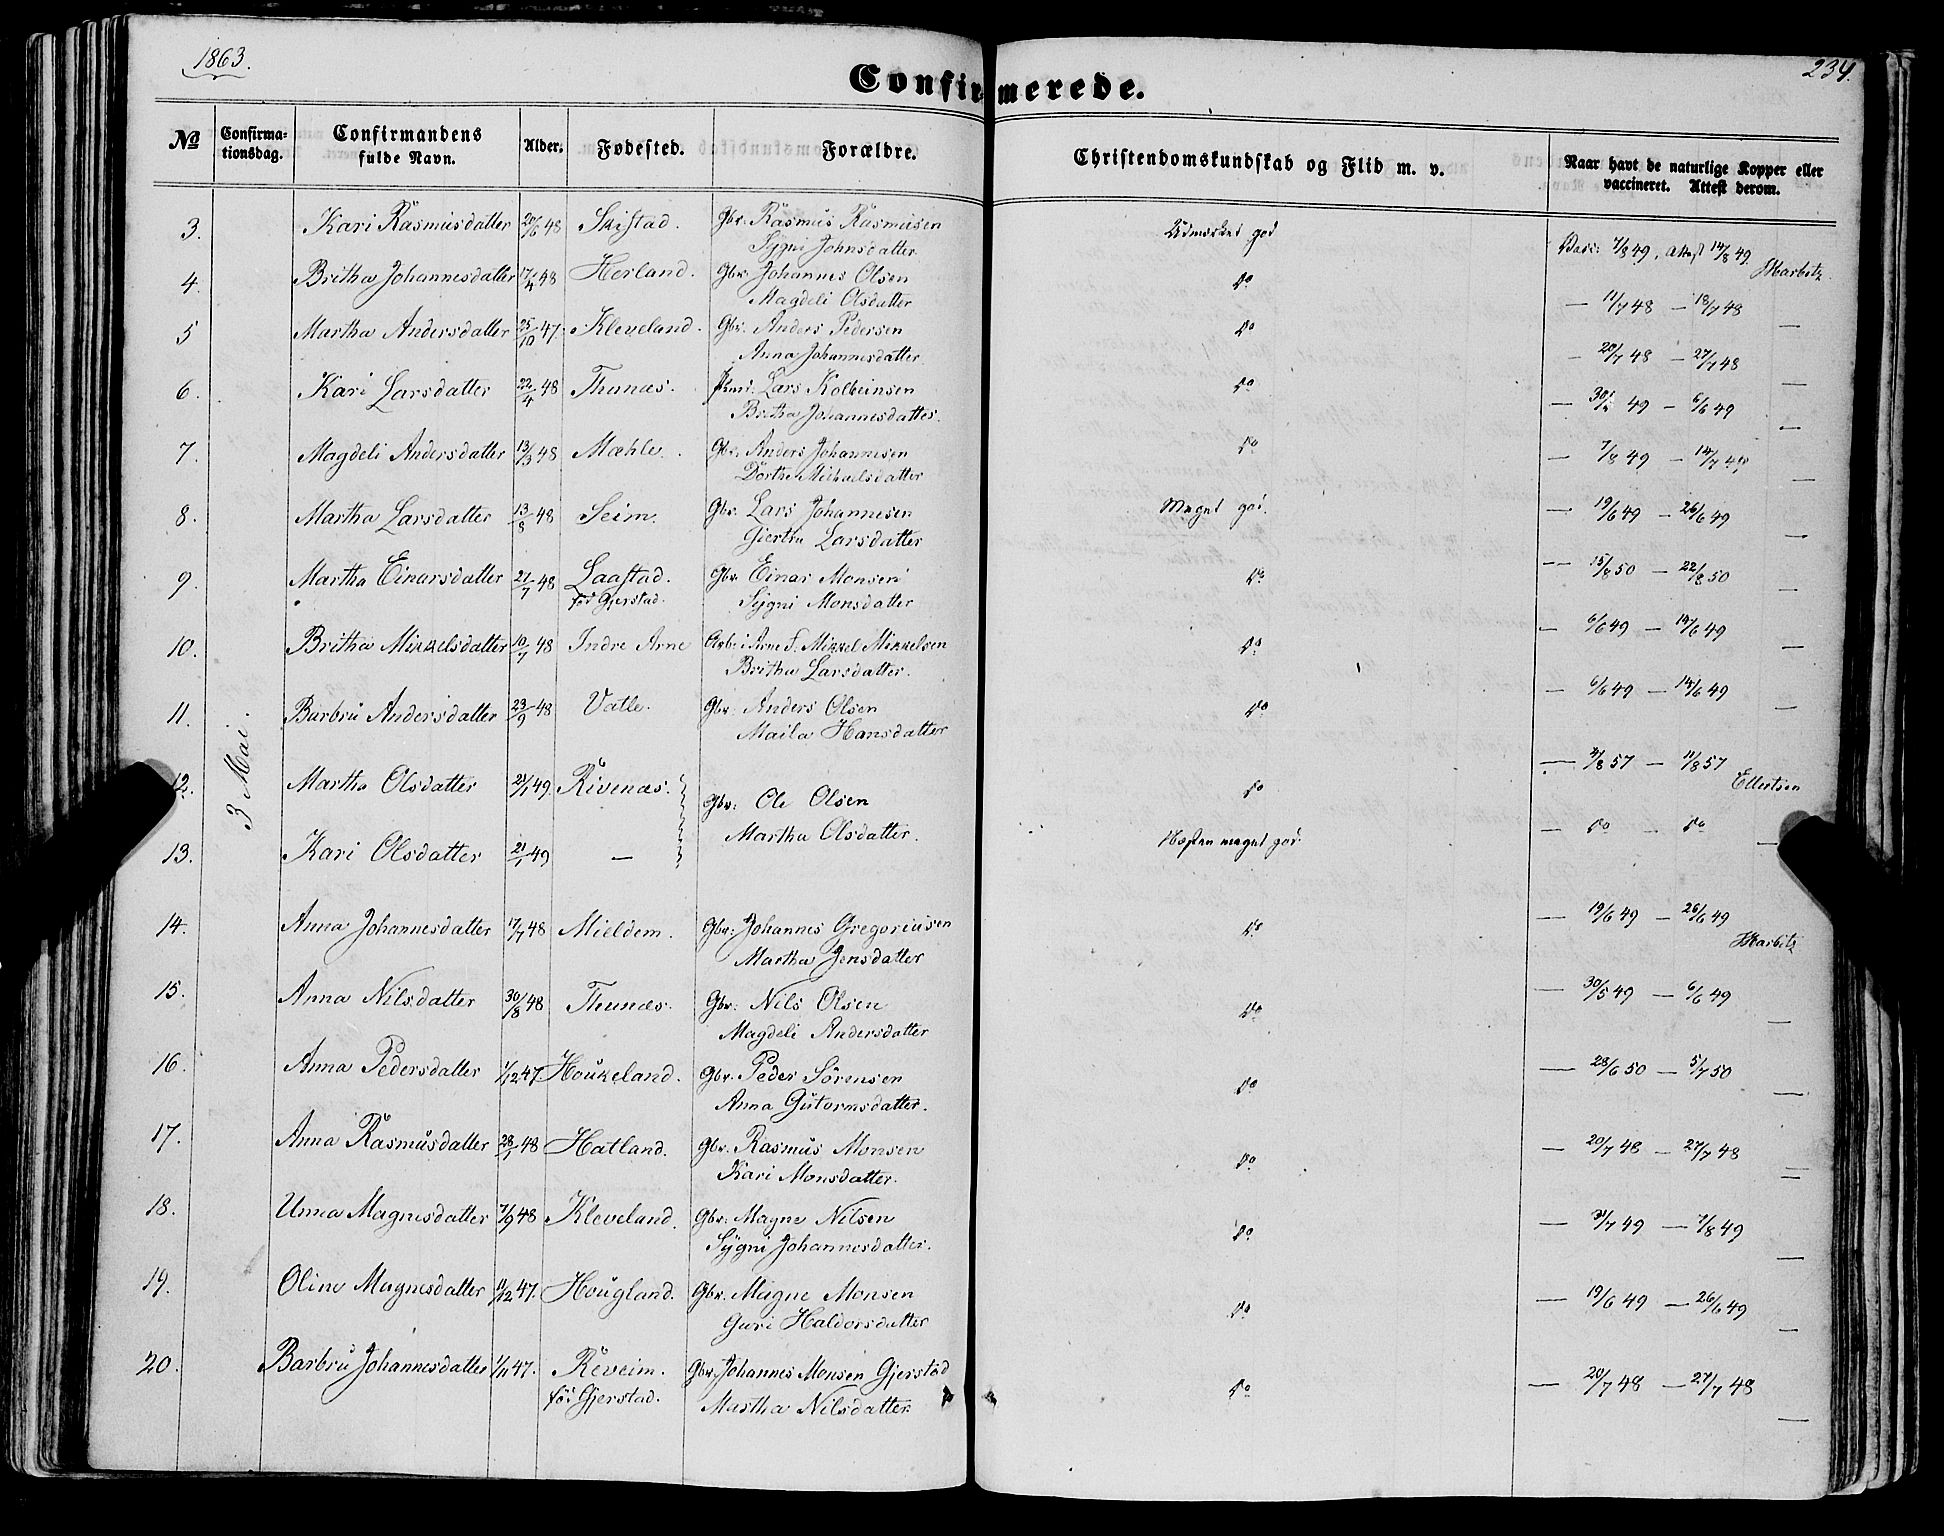 1863.
Confirmerede.
234.
No
Confirma-
tionsdag.
Confirmandens
fulde Navn.
Alder.
Fødested.
Forældre.
Christendomskundskab og Flid m. v.
Naar havt de naturlige Kopper eller
vaccineret. Attest derom.
3 Mai.
3. Kari Rasmusdatter 20/6 48 Skistad. Gbr: Rasmus Rasmusen Udmærket god Vacc: 7/8 49, attest 14/8 49.
Sygni Johnsdatter Marbitz
4. Britha Johannesdatter 17/4 48 Herland. Gbr. Johannes Olsen do — 11/7 48 — 18/7 48
Magdeli Olsdatter —
5 Martha Andersdatter 25/10 47. Kleveland. Gbr. Anders Pedersen do — 20/7 48 — 27/7 48
Anna Johannesdatter —
6. Kari Larsdatter 22/4 48 Thunæs. Lars Kolbeinsen do — 30/5 49 — 6/6 49
Britha Johannesdatter. —
7. Magdeli Andersdatter 13/3 48 Mæhle. Gbr. Anders Johannesen do — 7/8 49 — 14/7 49
Dorthe Michaelsdatter —
8. Martha Larsdatter 13/8 48 Seim. Gbr. Lars Johannesen Meget god. — 19/6 49 — 26/6 49
Giertru Larsdatter —
9. Martha Einarsdatter 21/7 48 Laastad. Gbr. Einar Monsen do — 15/8 50 — 22/8 50
fød Gjerstad. Sygni Monsdatter —
10. Britha Mikkelsdatter 10/7 48 Indre Arne Arb: i Arne F. Mikkel Mikkelsen do — 6/6 49 — 14/6 49
Britha Larsdatter. —
11. Barbru Andersdatter 23/9 48 Vatle. Gbr. Anders Olsen do — 6/6 49 — 14/6 49
Maila Hansdatter —
12. Martha Olsdatter 21/1 49. Rivenæs. Gbr: Ole Olsen do — 4/8 57 — 11/8 57
Martha Olsdatter. Ellertsen
13. Kari Olsdatter 21/1 49 — Næsten meget god — do — do —
14. Anna Johannesdatter 17/7 48 Mieldem. Gbr: Johannes Gregoriusen do — 19/6 49 — 26/6 49
Martha Jensdatter Marbitz
15. Anna Nilsdatter 30/8 48 Thunæs. Gbr. Nils Olsen do — 30/5 49 — 6/6 49
Magdeli Andersdatter —
16. Anna Pedersdatter 1/12 47 Houkeland. Gbr. Peder Sørensen do — 28/6 50 — 5/7 50
Anna Gutormsdatter. —
17. Anna Rasmusdatter 28/1 48 Hatland. Gbr. Rasmus Monsen do — 20/7 48 — 27/7 48
Kari Monsdatter. —
18. Unna Magnesdatter 7/9 48 Kleveland. Gbr: Magne Nilsen do — 31/7 49 — 7/8 49
Sygni Johannesdatter. —
19. Oline Magnesdatter 11/12 47. Hougland. Gbr. Magne Monsen do — 19/6 49 — 26/6 49
Guri Haldorsdatter —
20. Barbru Johannesdatter 1/11 47. Reveim. Gbr. Johannes Monsen Gjerstad do — 20/7 48 — 27/7 48
fød Gjerstad. Martha Nilsdatter. —